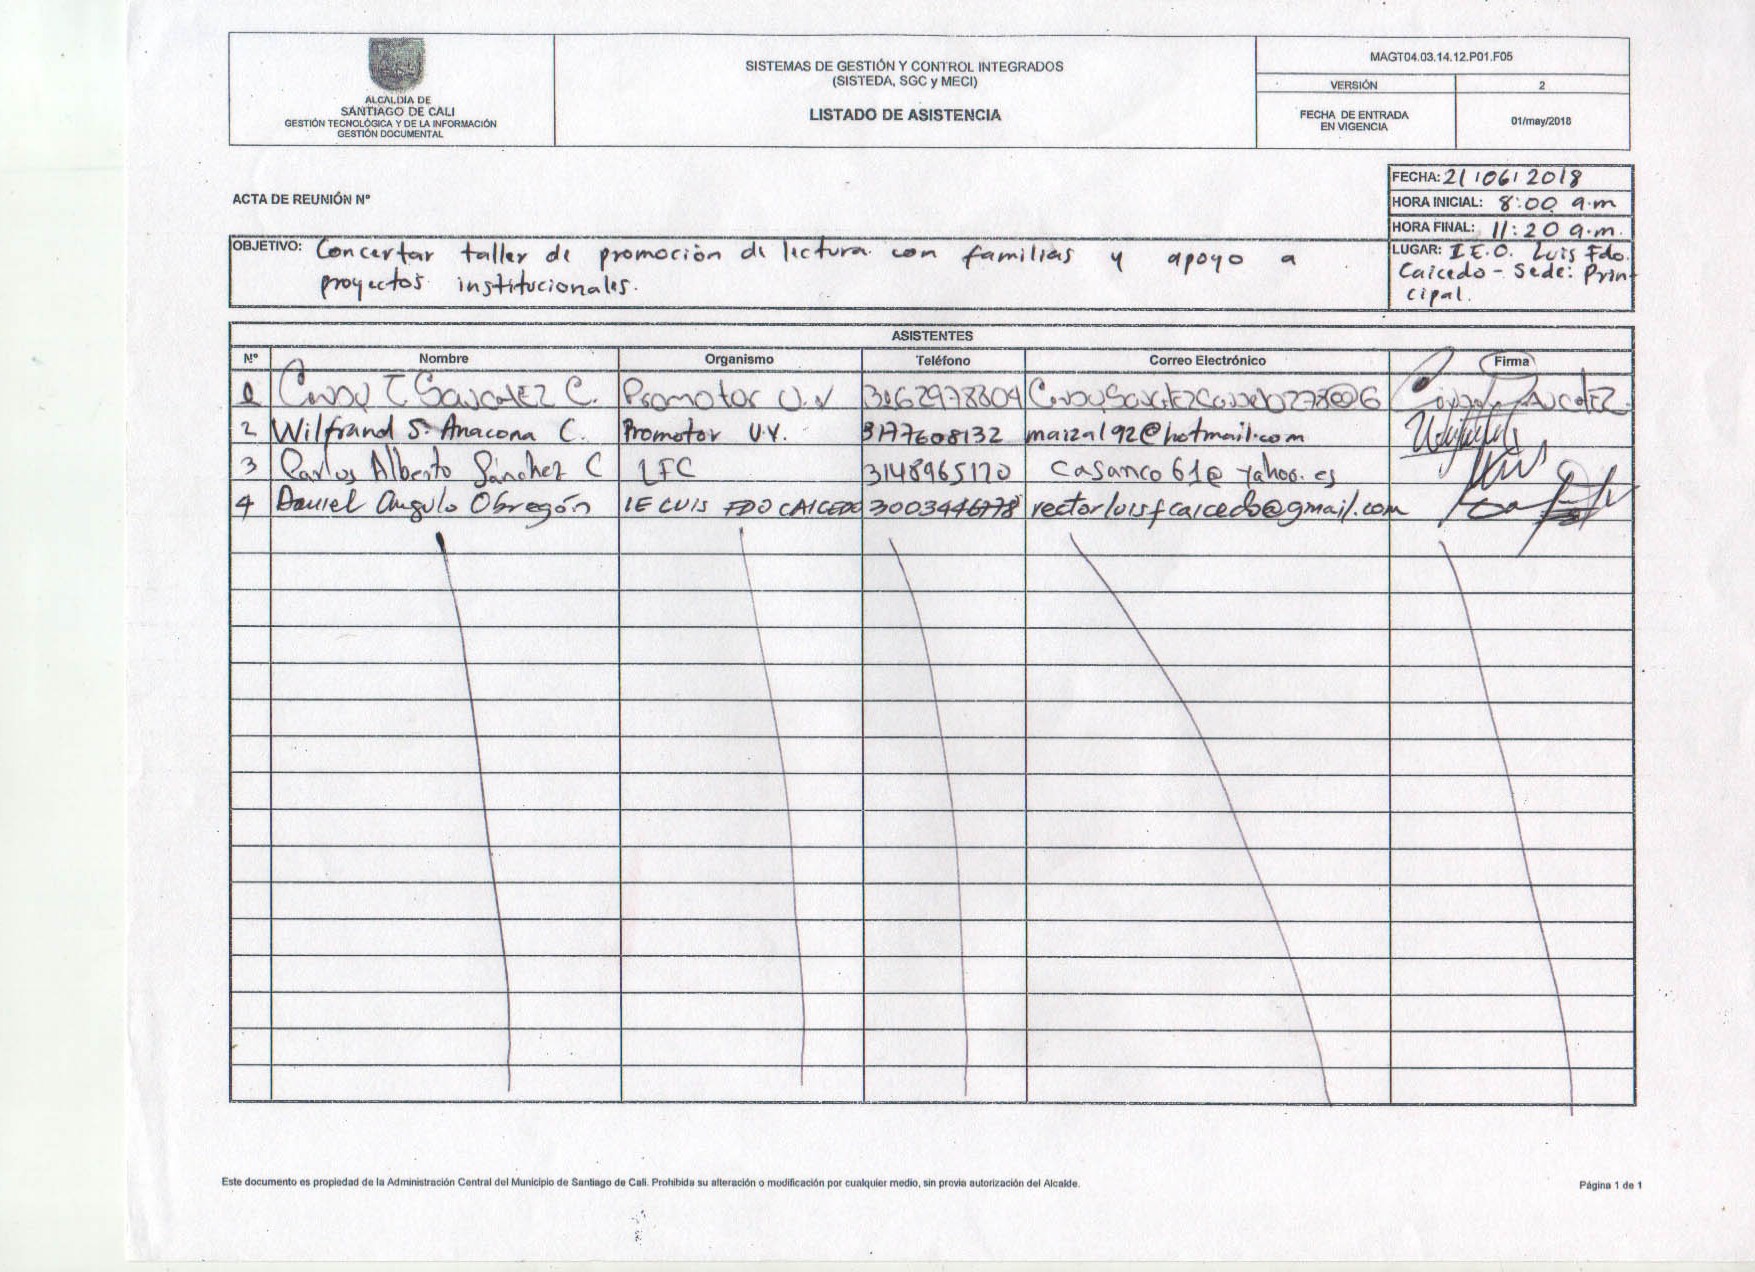 ALCALDÍA DE
SANTIAGO DE CALI
GESTIÓN TECNOLÓGICA Y DE LA INFORMACIÓN
GESTIÓN DOCUMENTAL
SISTEMAS DE GESTIÓN Y CONTROL INTEGRADOS
(SISTEDA, SGC y MECI)
LISTADO DE ASISTENCIA
MAGT04.03.14.12.P01.F05
VERSIÓN 2
FECHA DE ENTRADA
EN VIGENCIA
01/may/2018
ACTA DE REUNIÓN Nº
FECHA: 21/06/2018
HORA INICIAL: 8:00 a.m
HORA FINAL: 11:20 a.m.
LUGAR: I.E.O. Luis Fdo.
Caicedo - Sede: Prin
cipal.
OBJETIVO: Concertar taller de promoción de lectura con familias y apoyo a
proyectos institucionales.
ASISTENTES
Nº Nombre Organismo Teléfono Correo Electrónico Firma
C. Promotor U.V 3162978804
2 Wilfrand S. Anacona C. Promotor U.V. 3177608132 maizal92@hotmail.com
3 Carlos Alberto Sánchez C LFC 3148965170 casanco61@yahoo.es
4 Daniel Angulo Obregón IE LUIS FDO CAICEDO rectorluisfcaicedo@gmail.com
Este documento es propiedad de la Administración Central del Municipio de Santiago de Cali. Prohibida su alteración o modificación por cualquier medio, sin previa autorización del Alcalde.
Página 1 de 1